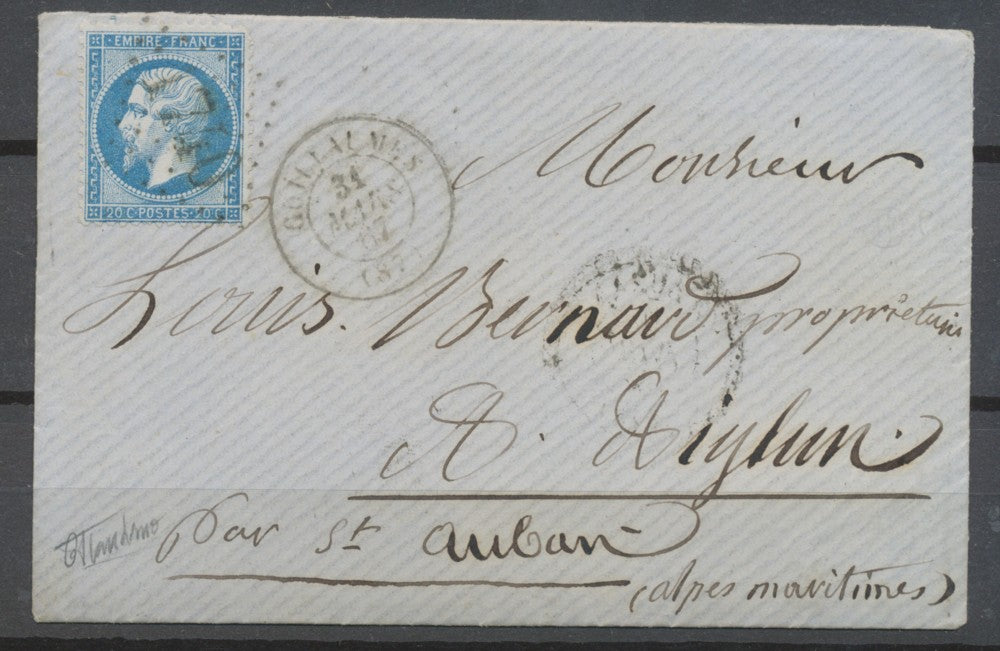 EMPIRE FRANC
20 C POSTES 20 C
GUILLAUMES
31
MARS
67
(87)
Monsieur
Louis. Bernard propriétaire
A. Aiglun.
par St auban
(alpes maritimes)